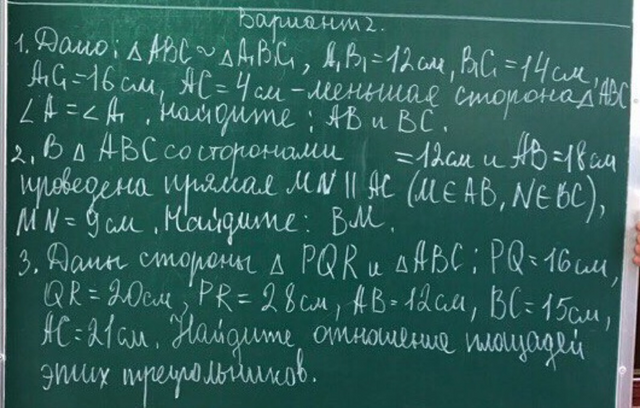 Вариант 2.
1. Дано: △ABC ~ △A₁B₁C₁, A₁B₁=12см, B₁C₁=14см,
A₁C₁=16см, AC=4см – меньшая сторона △ABC
∠A=∠A₁. Найдите: AB и BC.
2. В △ABC со сторонами =12см и AB=18см
проведена прямая MN || AC (M∈AB, N∈BC),
MN=9см. Найдите: BM.
3. Даны стороны △ PQR и △ABC: PQ=16см,
QR=20см, PR=28см, AB=12см, BC=15см,
AC=21см. Найдите отношение площадей
этих треугольников.